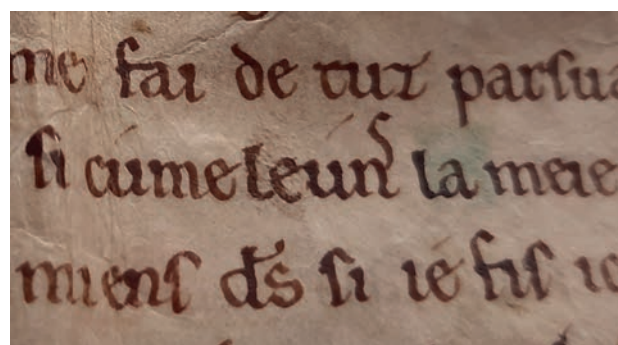 me fai de tut parsua
si cúmeleuns la meie
miens ds si ié fis ic